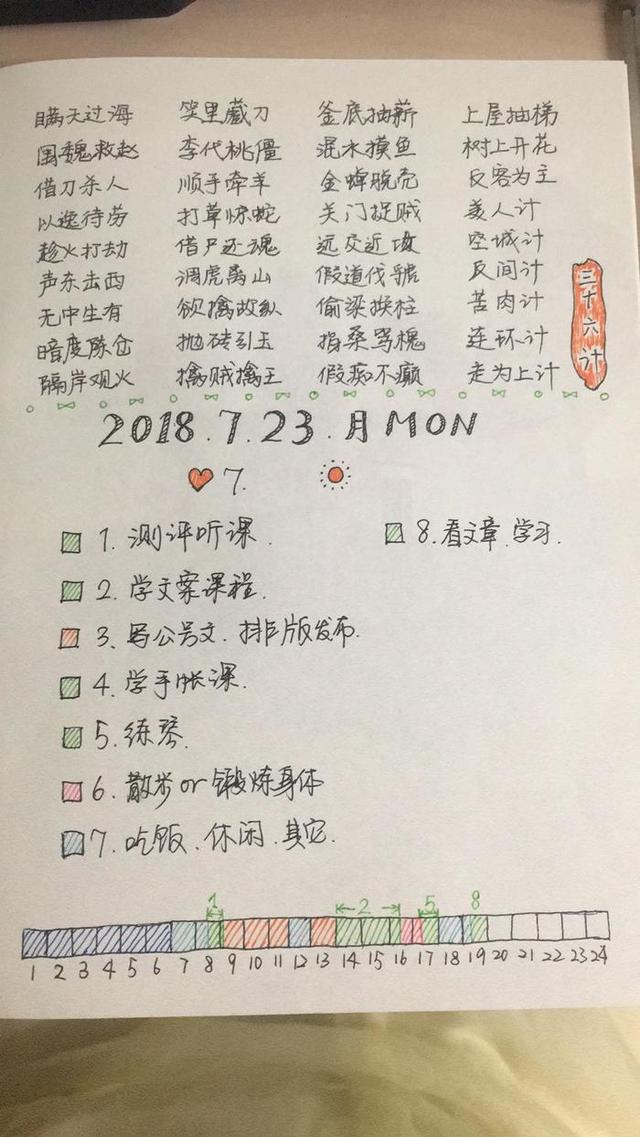 瞒天过海 笑里藏刀 釜底抽薪 上屋抽梯
围魏救赵 李代桃僵 混水摸鱼 树上开花
借刀杀人 顺手牵羊 金蝉脱壳 反客为主
以逸待劳 打草惊蛇 关门捉贼 美人计
趁火打劫 借尸还魂 远交近攻 空城计
声东击西 调虎离山 假道伐虢 反间计
无中生有 欲擒故纵 偷梁换柱 苦肉计
暗度陈仓 抛砖引玉 指桑骂槐 连环计
隔岸观火 擒贼擒王 假痴不癫 走为上计
三十六计
2018.7.23.月MON
7.
1. 测评听课.
2. 学文案课程.
3. 写公号文. 排版发布.
4. 学手帐课.
5. 练琴.
6. 散步or锻炼身体
7. 吃饭、休闲、其它.
8. 看文章.学习.
1 2 5 8
1 2 3 4 5 6 7 8 9 10 11 12 13 14 15 16 17 18 19 20 21 22 23 24